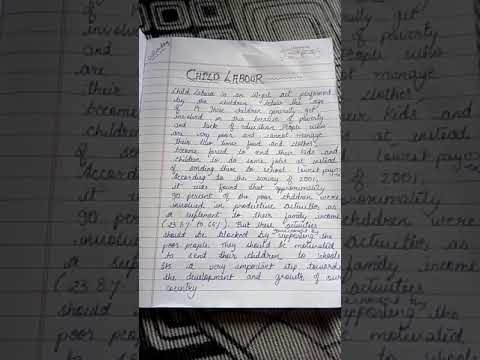 CHILD LABOUR
Child labour is an illegal act performed
by the children below the age
of 14. These children generally get
involved in this because of poverty
and lack of education. People who
are very poor and cannot manage
their two times food and clothes
become bound to send their kids and
children to do some jobs at instead
of sending them to school.
According to the survey of 2001,
it was found that approximately
90 percent of the poor children were
involved in productive activities as
a suplement to their family income
(23.8% to 65%). But these activities
should be blocked by supporting the
poor people. They should be motivated
to send their children to schools
Its a very important step towards
the development and growth of our
country